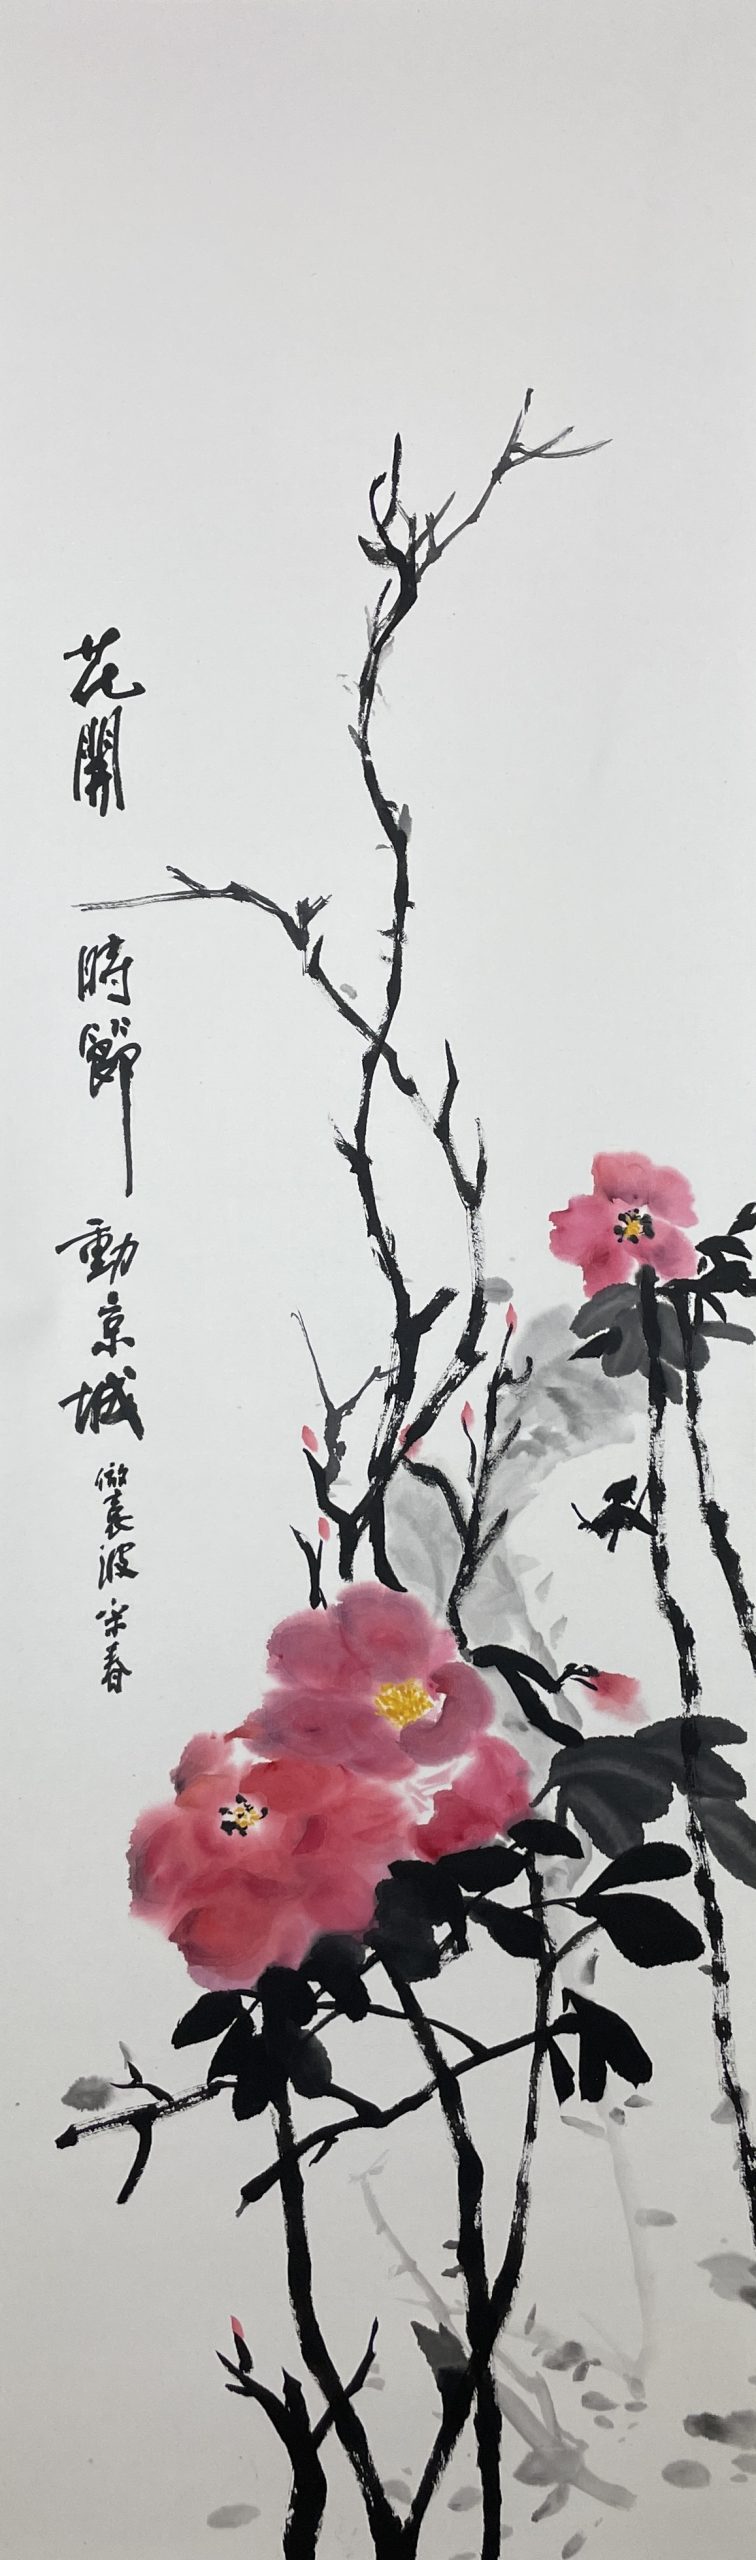 花開時節動京城
倣袁波 春